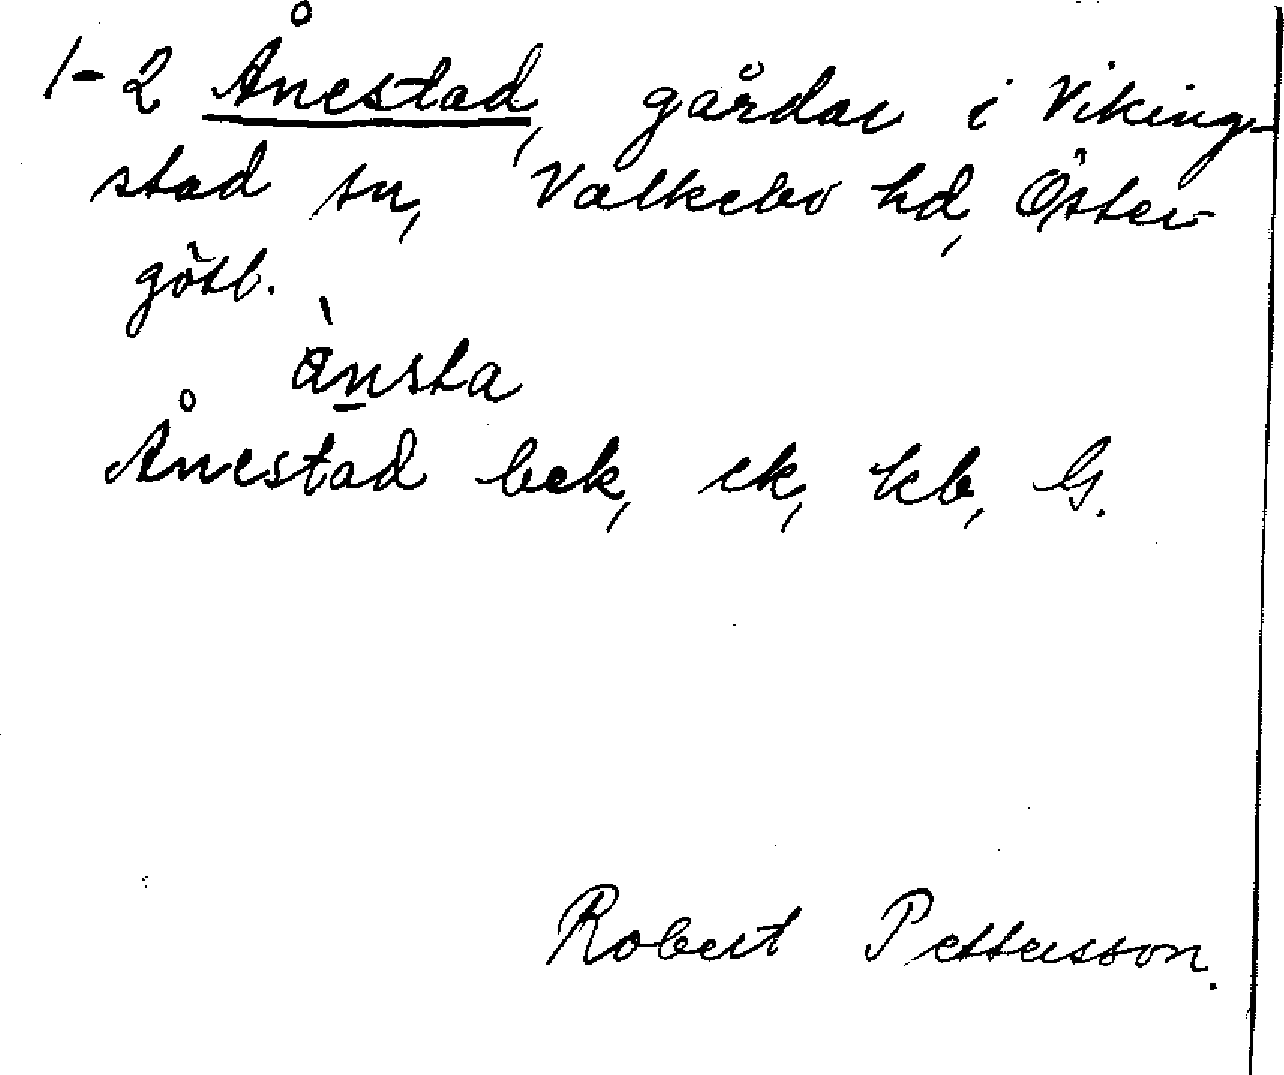 1-2 Ånestad, gårdar i Viking-
stad sn, Valkebo hd, Öster-
götl.
ànsta
Ånestad bek, ek, kb, G.
Robert Pettersson.